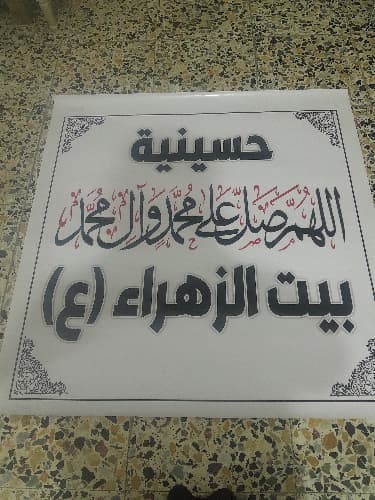 حسينية
اللهم صل على محمد وآل محمد
بيت الزهراء (ع)